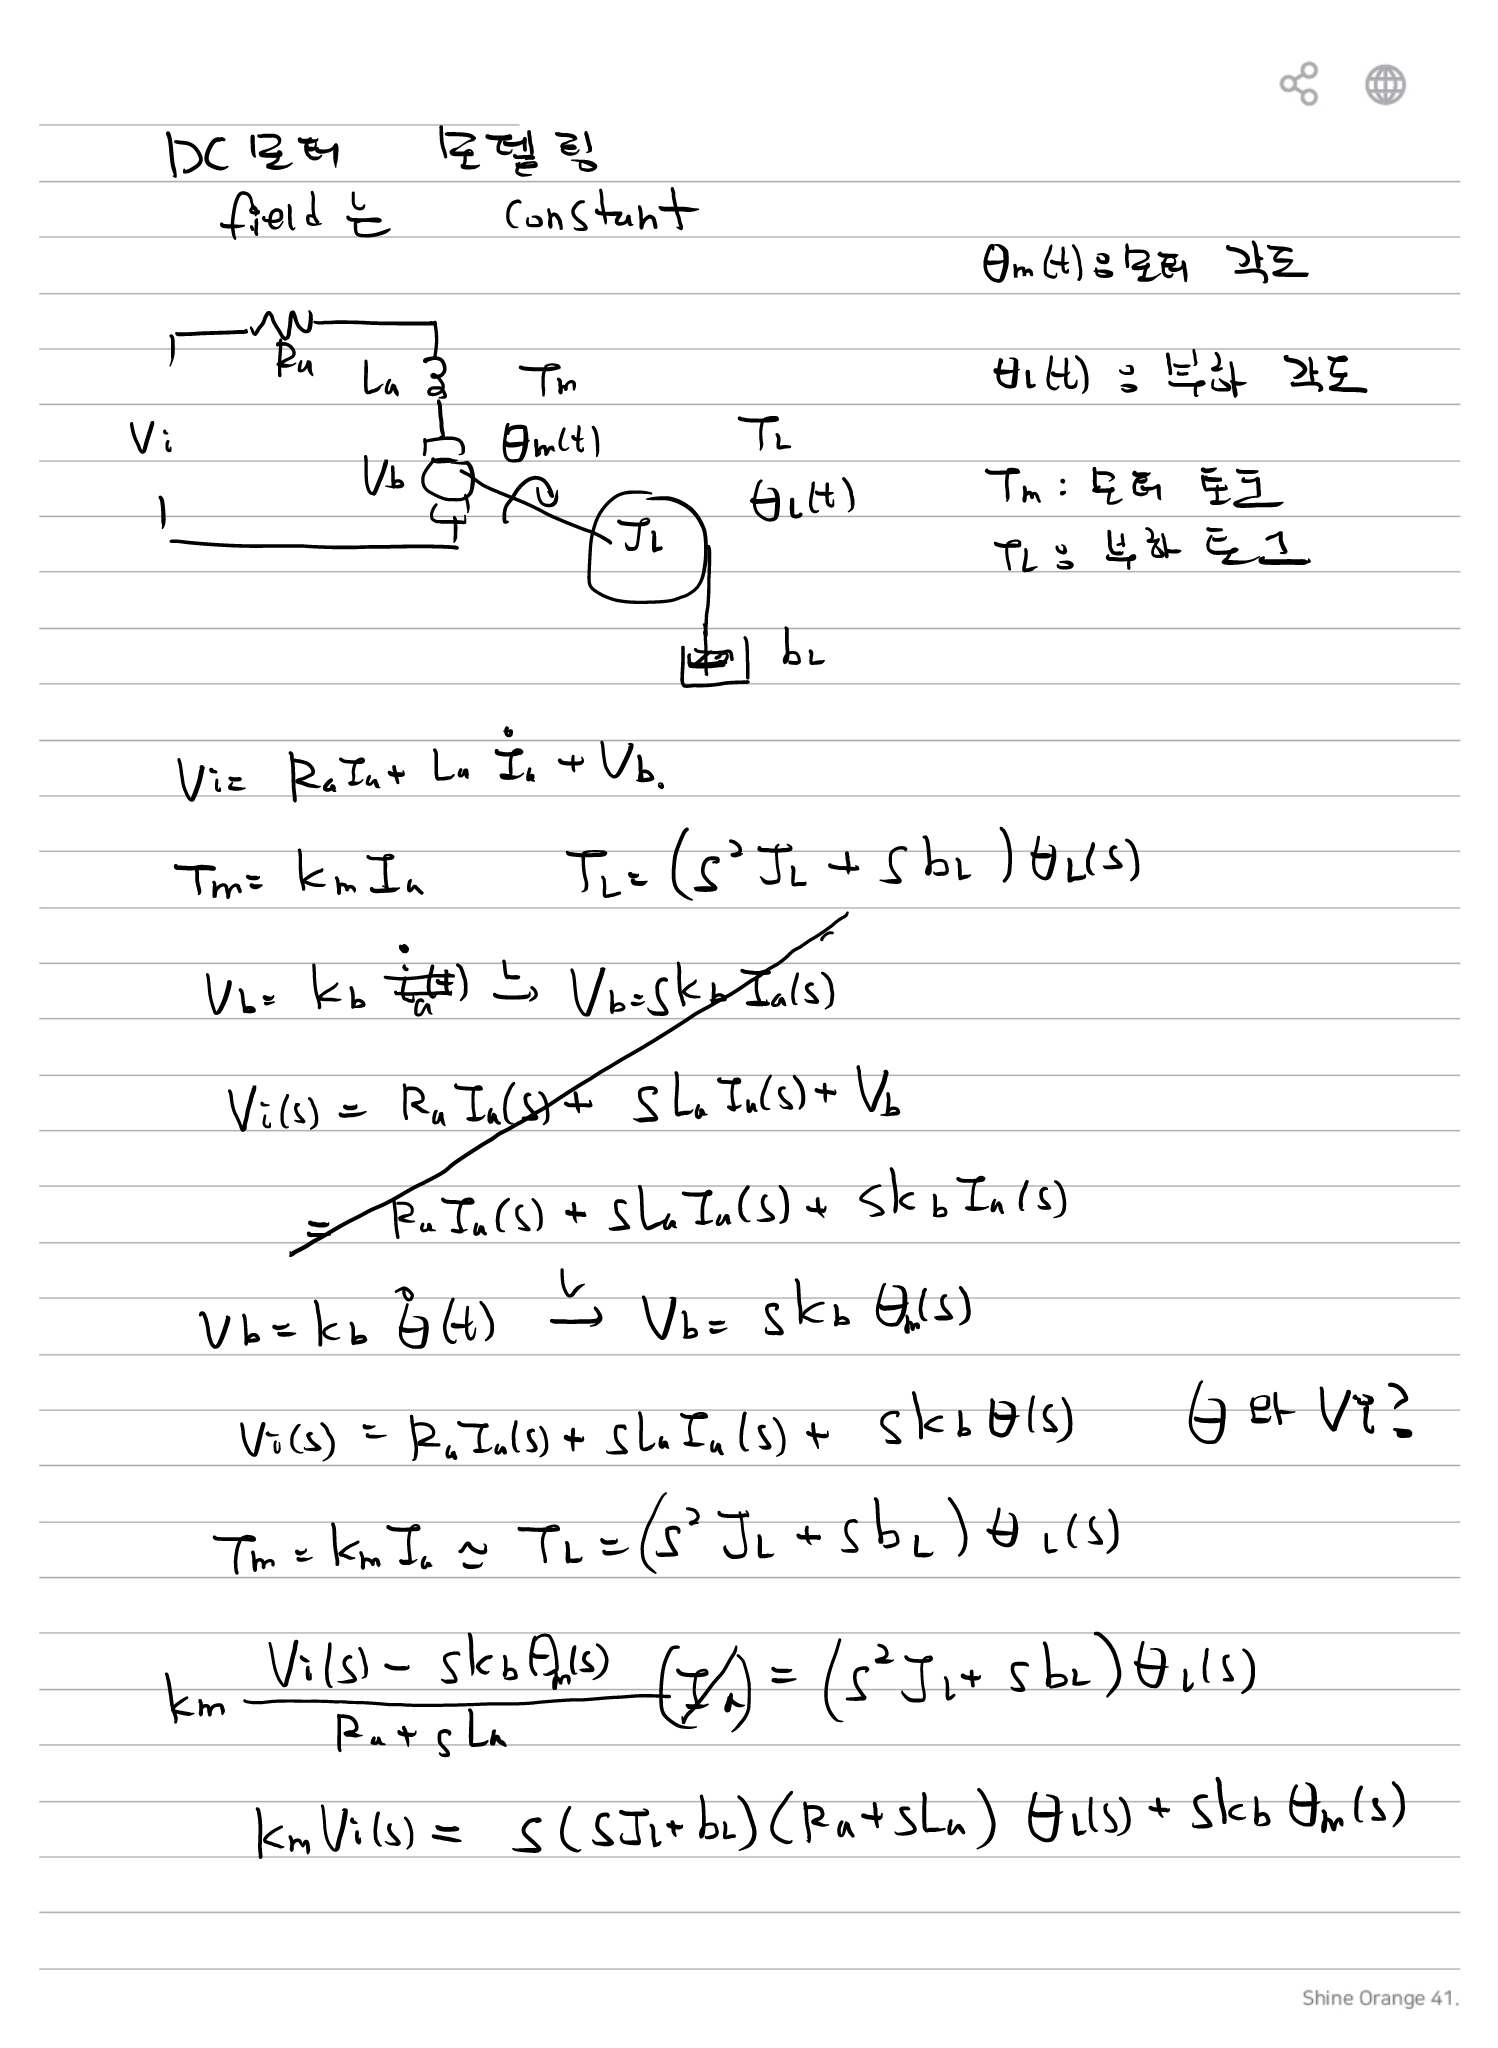 DC 모터 모델링
field는 constant
θm(t) : 모터 각도
Ra
La
Tm
θL(t) : 부하 각도
Vi
Vb
θm(t)
TL
θL(t)
Tm : 모터 토크
TL : 부하 토크
JL
bL
Vi = RaIa + La İa + Vb.
Tm = km Ia TL = (s² JL + s bL) θL(s)
Vb = kb i̇a(t) →L Vb = skb Ia(s)
Vi(s) = Ra Ia(s) + sLa Ia(s) + Vb
= Ra Ia(s) + sLa Ia(s) + skb Ia(s)
Vb = kb θ̇(t) →L Vb = skb θm(s)
Vi(s) = Ra Ia(s) + sLa Ia(s) + skb θ(s) θ 와 Vi?
Tm = km Ia ≃ TL = (s² JL + s bL) θL(s)
km (Vi(s) - skb θm(s)) / (Ra + sLa) (Ia) = (s² JL + s bL) θL(s)
km Vi(s) = s(sJL + bL)(Ra + sLa) θL(s) + skb θm(s)
Shine Orange 41.